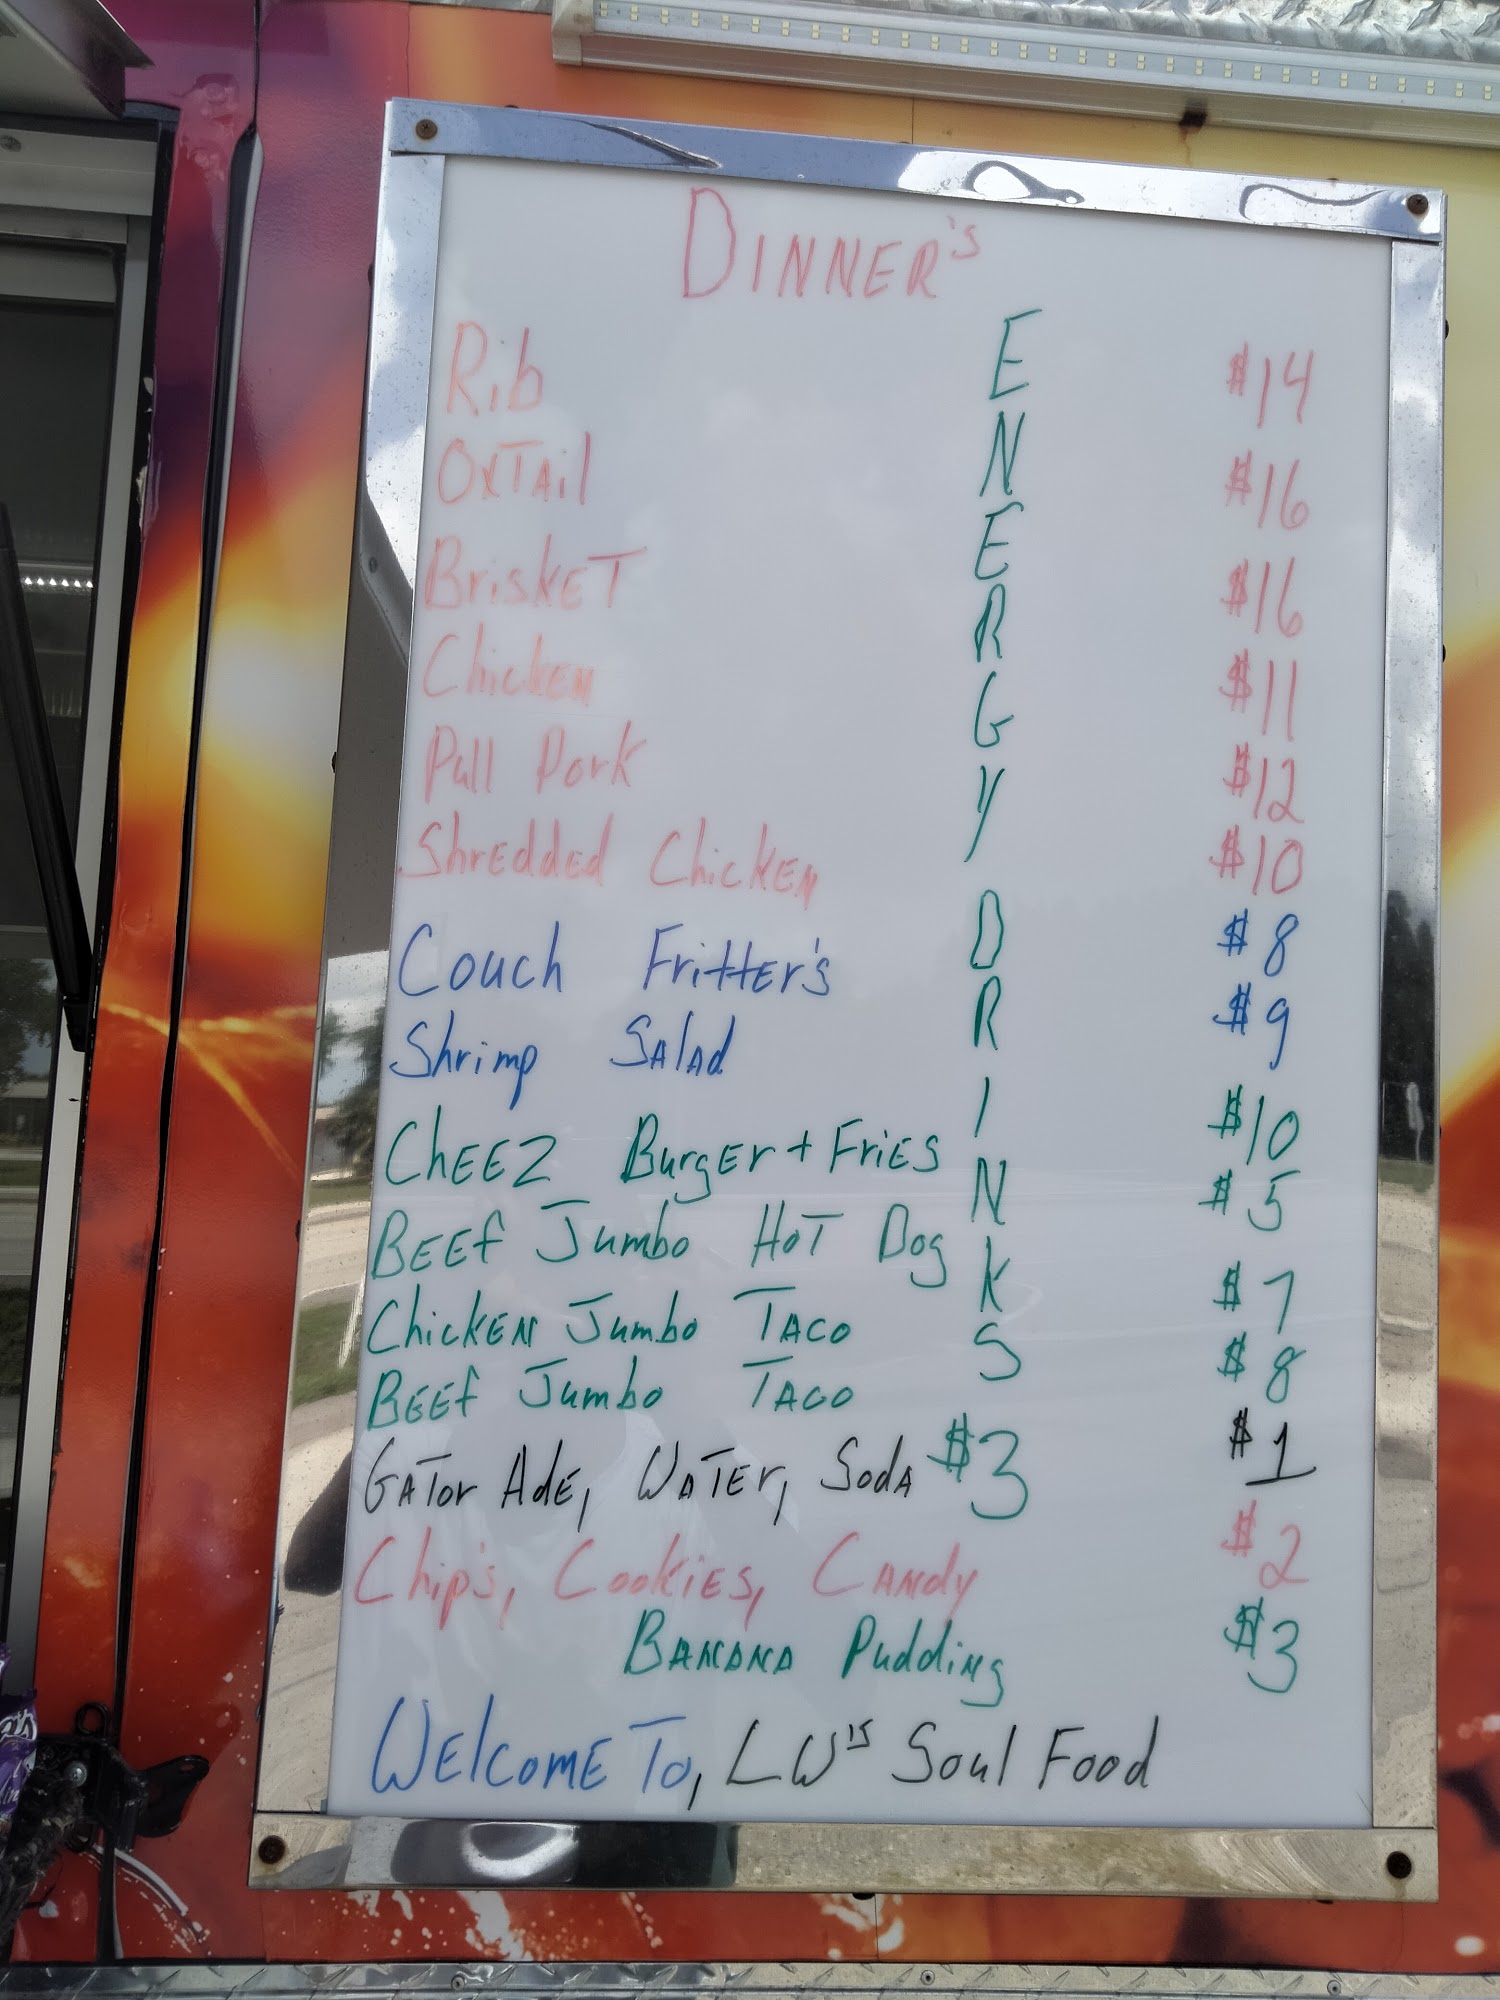 DINNER'S
Rib $14
OxTAil $16
BriskET $16
ChickEN $11
Pull Pork $12
ShrEddEd ChickEN $10
Couch FrittEr's $8
Shrimp SAlAd $9
ChEEZ BurgEr + FriES $10
BEEf Jumbo HoT Dog $5
ChickEN Jumbo TACO $7
BEEf Jumbo TACO $8
GATor AdE, WATEr, SodA $1
Chip's, CookiES, CANdy $2
BANANA Pudding $3
ENERGY DRINKS $3
WElcomE To, LW's Soul Food